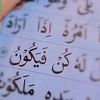 اَمْرُهٗٓ اِذَآ اَرَادَ
لَهٗ كُنْ فَيَكُوْنُ
مَلَكُوْتُ